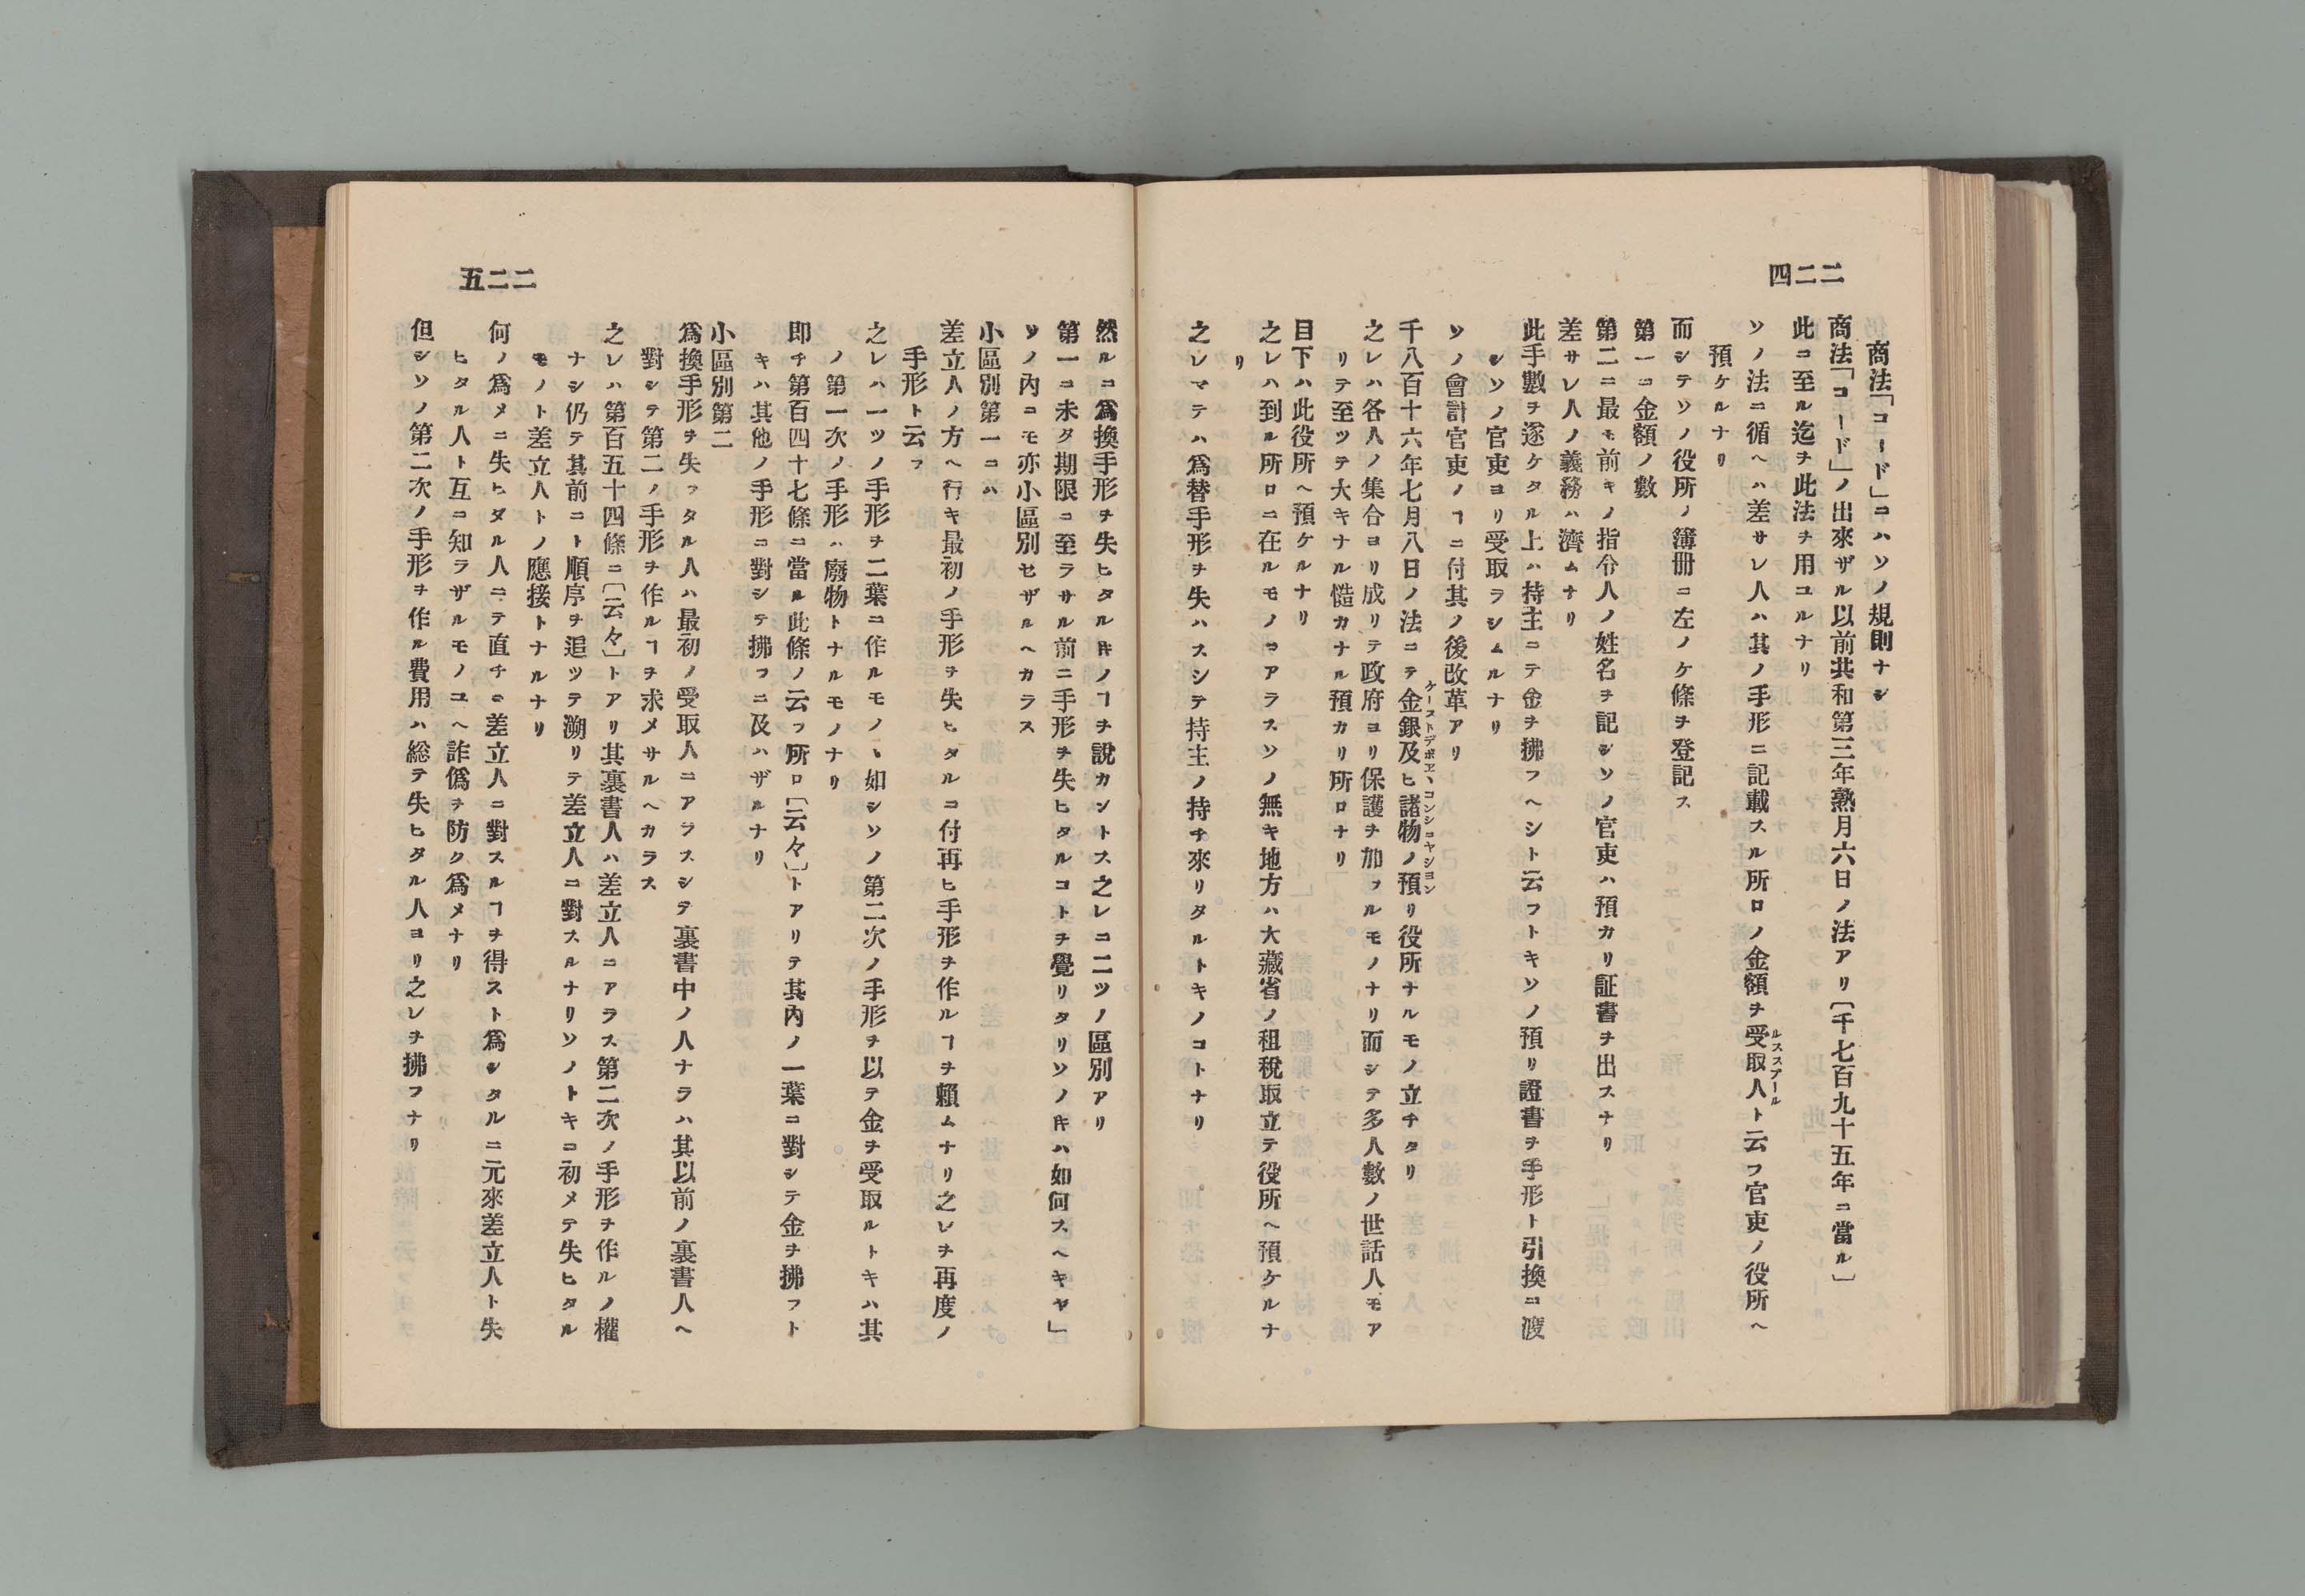 二二四
商法「コード」ニハソノ規則ナシ
商法「コード」ノ出來ザル以前共和第三年熟月六日ノ法アリ〔千七百九十五年ニ當ル〕
此ニ至ル迄ヲ此法ヲ用ユルナリ
ソノ法ニ循ヘハ差サレ人ハ其ノ手形ニ記載スル所ロノ金額ヲ受取人ト云フ官吏ノ役所ヘ
ルススプール
預ケルナリ
而シテソノ役所ノ簿冊ニ左ノケ條ヲ登記ス
第一ニ金額ノ數
第二ニ最モ前キノ指令人ノ姓名ヲ記シソノ官吏ハ預カリ証書ヲ出スナリ
差サレ人ノ義務ハ濟ムナリ
此手數ヲ遂ケタル上ハ持主ニテ金ヲ拂フヘシト云フトキソノ預リ證書ヲ手形ト引換ニ渡
シソノ官吏ヨリ受取ラシムルナリ
ソノ會計官吏ノヿニ付其ノ後改革アリ
千八百十六年七月八日ノ法ニテ金銀及ヒ諸物ノ預リ役所ナルモノ立チタリ
ケーストデポヱ、コンシコヤシヨン
之レハ各人ノ集合ヨリ成リテ政府ヨリ保護ヲ加フルモノナリ而シテ多人數ノ世話人モア
リテ至ツテ大キナル慥カナル預カリ所ロナリ
目下ハ此役所ヘ預ケルナリ
之レハ到ル所ロニ在ルモノニアラスソノ無キ地方ハ大藏省ノ租稅取立テ役所ヘ預ケルナ
リ
之レマテハ爲替手形ヲ失ハスシテ持主ノ持チ來リタルトキノコトナリ
二二五
然ルニ爲換手形ヲ失ヒタルキノヿヲ說カントス之レニ二ツノ區別アリ
第一ニ未タ期限ニ至ラサル前ニ手形ヲ失ヒタルコトヲ覺リタリソノキハ如何スヘキヤ」
ソノ內ニモ亦小區別セザルヘカラス
小區別第一ニハ
差立人ノ方ヘ行キ最初ノ手形ヲ失ヒタルニ付再ヒ手形ヲ作ルヿヲ賴ムナリ之レヲ再度ノ
手形ト云フ
之レハ一ツノ手形ヲ二葉ニ作ルモノヽ如シソノ第二次ノ手形ヲ以テ金ヲ受取ルトキハ其
ノ第一次ノ手形ハ廢物トナルモノナリ
即チ第百四十七條ニ當ル此條ノ云フ所ロ〔云々〕トアリテ其內ノ一葉ニ對シテ金ヲ拂フト
キハ其他ノ手形ニ對シテ拂フニ及ハザルナリ
小區別第二
爲換手形ヲ失フタル人ハ最初ノ受取人ニアラスシテ裏書中ノ人ナラハ其以前ノ裏書人ヘ
對シテ第二ノ手形ヲ作ルヿヲ求メサルヘカラス
之レハ第百五十四條ニ〔云々〕トアリ其裏書人ハ差立人ニアラス第二次ノ手形ヲ作ルノ權
ナシ仍テ其前ニト順序ヲ追ツテ溯リテ差立人ニ對スルナリソノトキニ初メテ失ヒタル
モノト差立人トノ應接トナルナリ
何ノ爲メニ失ヒタル人ニテ直チニ差立人ニ對スルヿヲ得スト爲シタルニ元來差立人ト失
ヒタル人ト互ニ知ラザルモノユヘ詐僞ヲ防ク爲メナリ
但シソノ第二次ノ手形ヲ作ル費用ハ総テ失ヒタル人ヨリ之レヲ拂フナリ